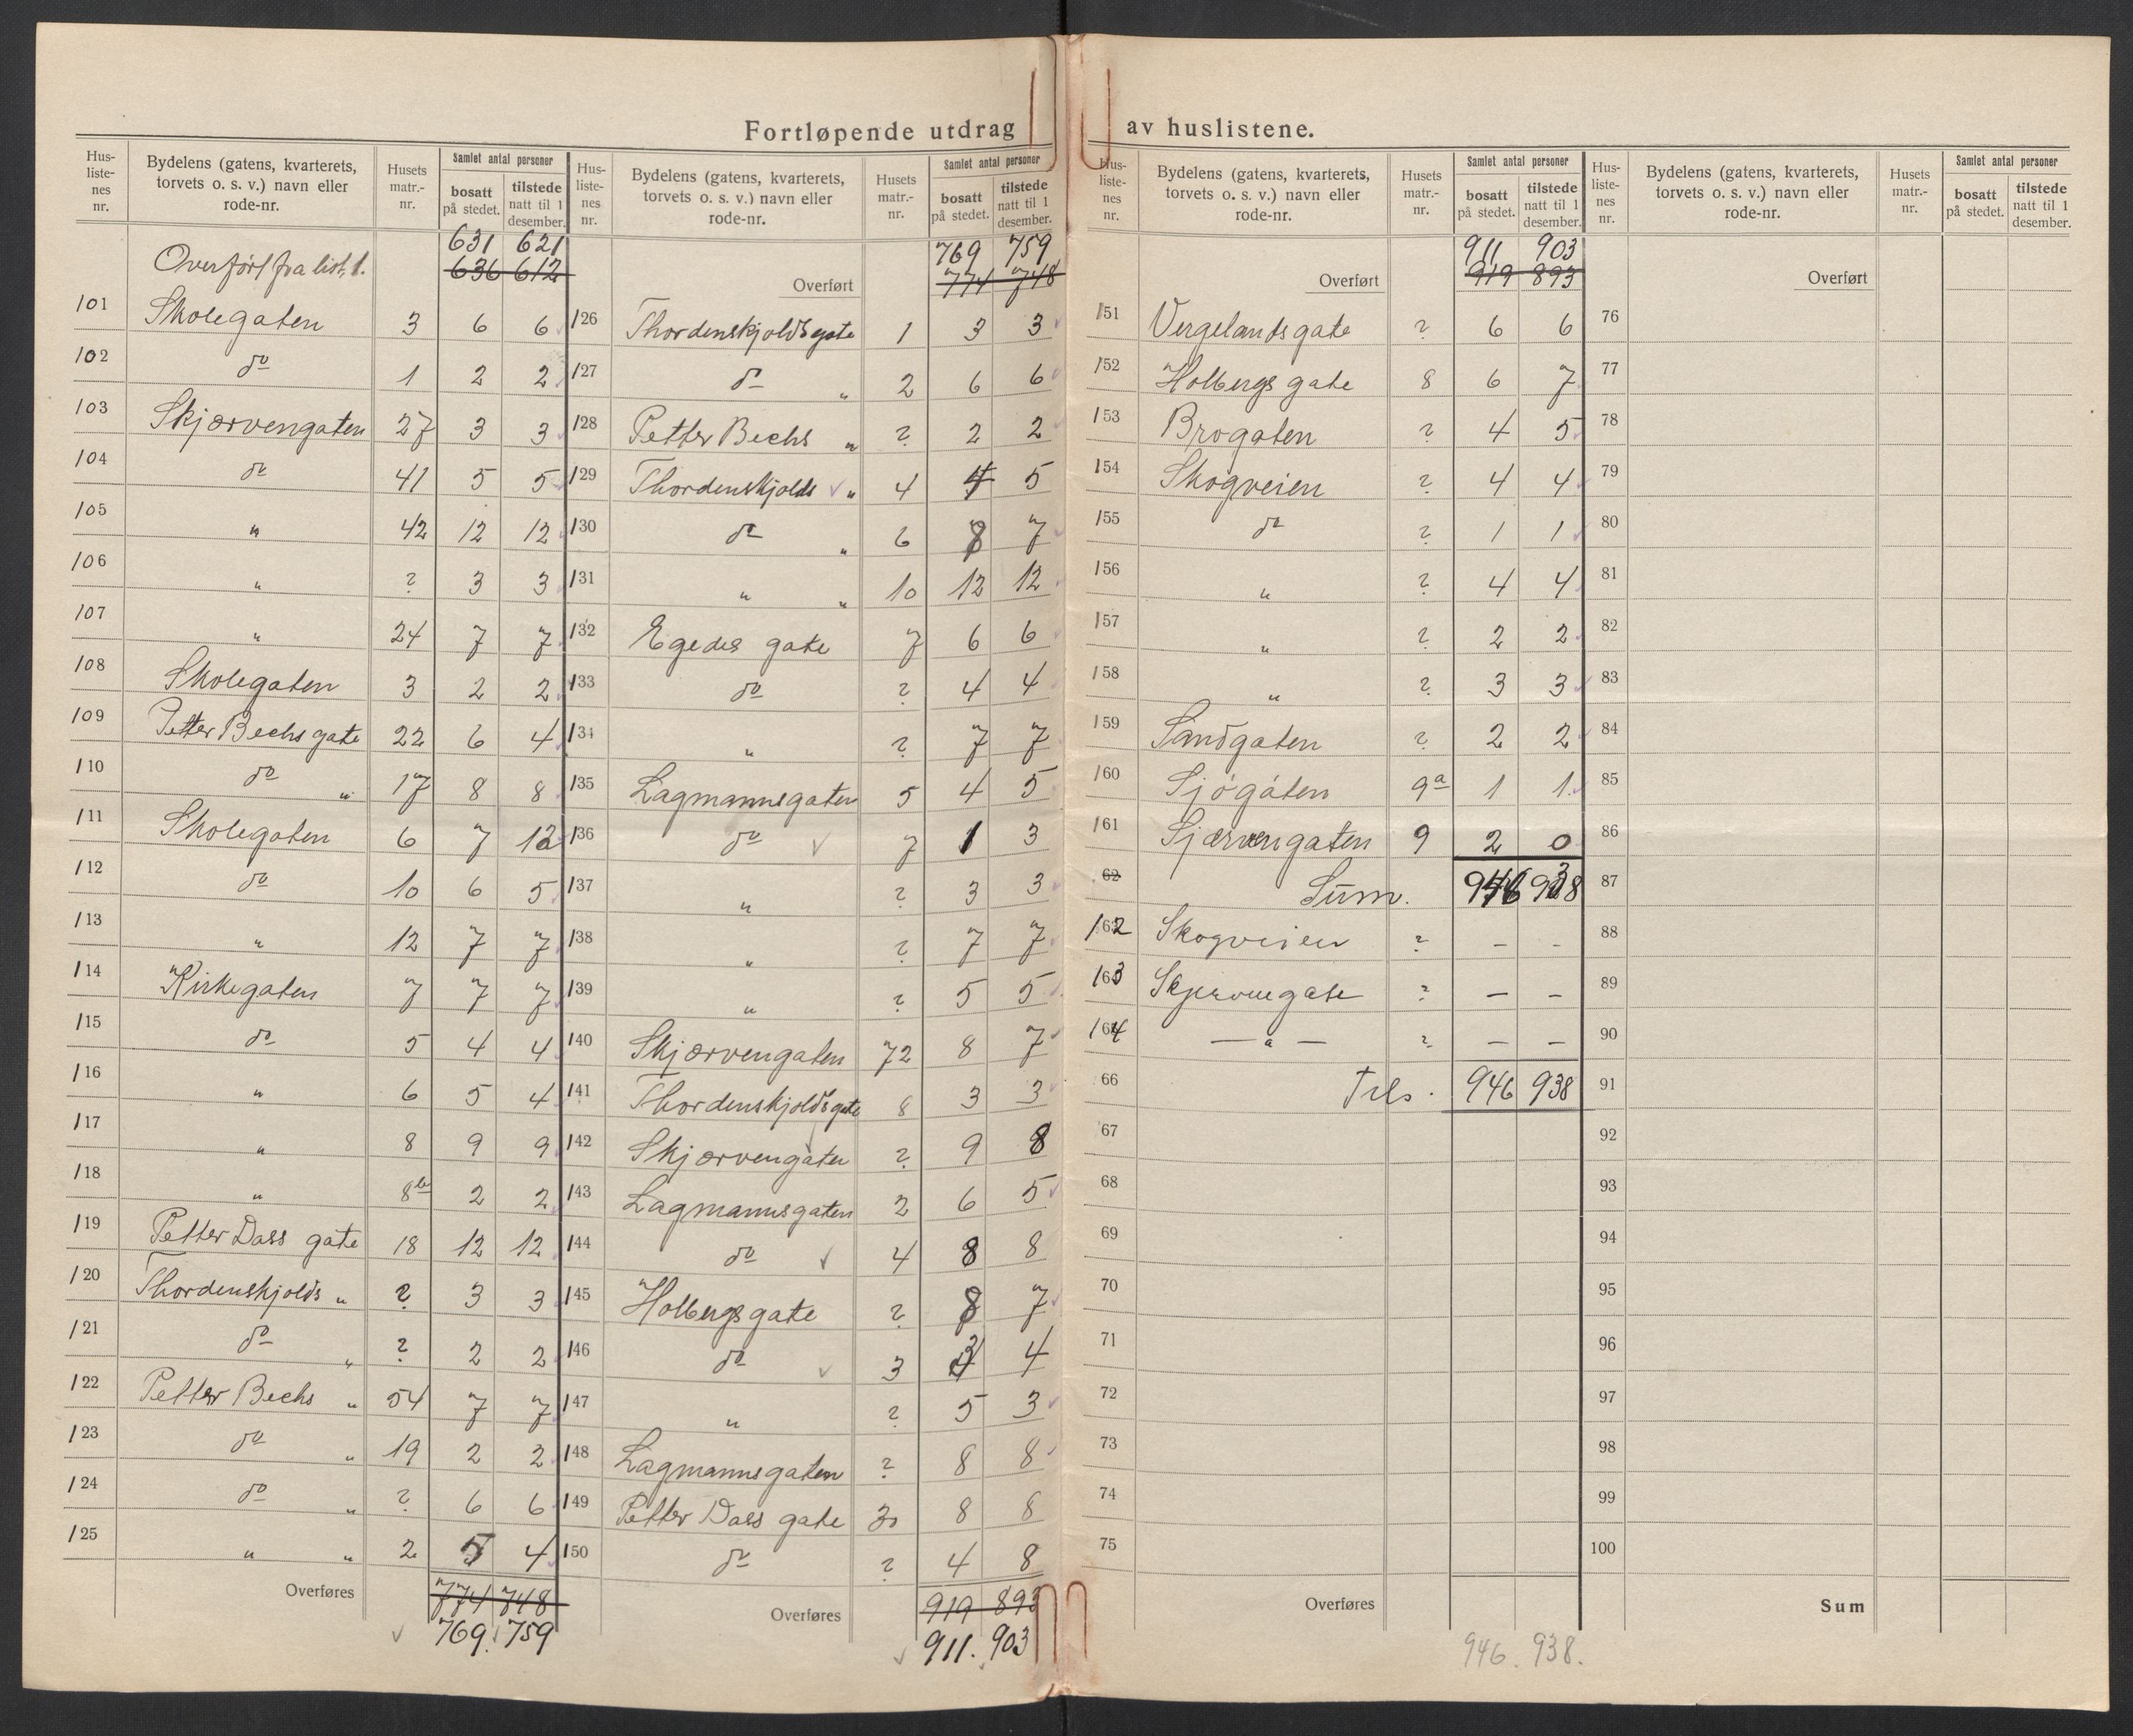 Fortløpende utdrag av huslistene.
Hus-listenes nr. | Bydelens (gatens, kvarterets, torvets o. s. v.) navn eller rode-nr. | Husets matr.-nr. | Samlet antal personer | bosatt på stedet. | tilstede natt til 1 desember.
Overført fra list, 1. 631 621
636 612
101 Skolegaten 3 6 6
102 do 1 2 2
103 Skjærvengaten 27 3 3
104 do 41 5 5
105 " 42 12 12
106 " ? 3 3
107 " 24 7 7
108 Skolegaten 3 2 2
109 Petter Bechs gate 22 6 4
110 do " 17 8 8
111 Skolegaten 6 7 12
112 do 10 6 5
113 " 12 7 7
114 Kirkegaten 7 7 7
115 do 5 4 4
116 " 6 5 4
117 " 8 9 9
118 " 8b 2 2
119 Petter Dass gate 18 12 12
120 Thordenskjolds " ? 3 3
121 do " ? 2 2
122 Petter Bechs " 54 7 7
123 do " 19 2 2
124 do " ? 6 6
125 " " 2 5 4
Overføres 774 748
769. 759
Hus-listenes nr. | Bydelens (gatens, kvarterets, torvets o. s. v.) navn eller rode-nr. | Husets matr.-nr. | Samlet antal personer | bosatt på stedet. | tilstede natt til 1 desember.
769 759
Overført 774 748
126 Thordenskjolds gate 1 3 3
127 do " 2 6 6
128 Petter Bechs " ? 2 2
129 Thordenskjolds " 4 4 5
130 do " 6 8 7
131 " " 10 12 12
132 Egedes gate 7 6 6
133 do ? 4 4
134 " ? 7 7
135 Lagmannsgaten 5 4 5
136 do 7 1 3
137 " ? 3 3
138 " ? 7 7
139 " ? 5 5
140 Skjærvengaten 72 8 7
141 Thordenskjolds gate 8 3 3
142 Skjærvengaten ? 9 8
143 Lagmannsgaten 2 6 5
144 do 4 8 8
145 Holbergs gate ? 8 7
146 do 3 3 4
147 " ? 5 3
148 Lagmannsgaten ? 8 8
149 Petter Dass gate 30 8 8
150 do ? 4 8
Overføres 919 893
911. 903
Hus-listenes nr. | Bydelens (gatens, kvarterets, torvets o. s. v.) navn eller rode-nr. | Husets matr.-nr. | Samlet antal personer | bosatt på stedet. | tilstede natt til 1 desember.
911 903
Overført 919 893
151 Vergelandsgate ? 6 6
152 Holbergs gate 8 6 7
153 Brogaten ? 4 5
154 Skogveien ? 4 4
155 do ? 1 1
156 " ? 4 4
157 " ? 2 2
158 " ? 3 3
159 Sandgaten ? 2 2
160 Sjøgaten 9a 1 1
161 Sjærvengaten 9 2 0
62 Sum. 946 938
162 Skogveien ? – –
163 Skjervengate ? – –
164 — " — ? – –
66 Tils. 946 938
67
68
69
70
71
72
73
74
75
Overføres
946. 938.
Hus-listenes nr. | Bydelens (gatens, kvarterets, torvets o. s. v.) navn eller rode-nr. | Husets matr.-nr. | Samlet antal personer | bosatt på stedet. | tilstede natt til 1 desember.
Overført
76
77
78
79
80
81
82
83
84
85
86
87
88
89
90
91
92
93
94
95
96
97
98
99
100
Sum